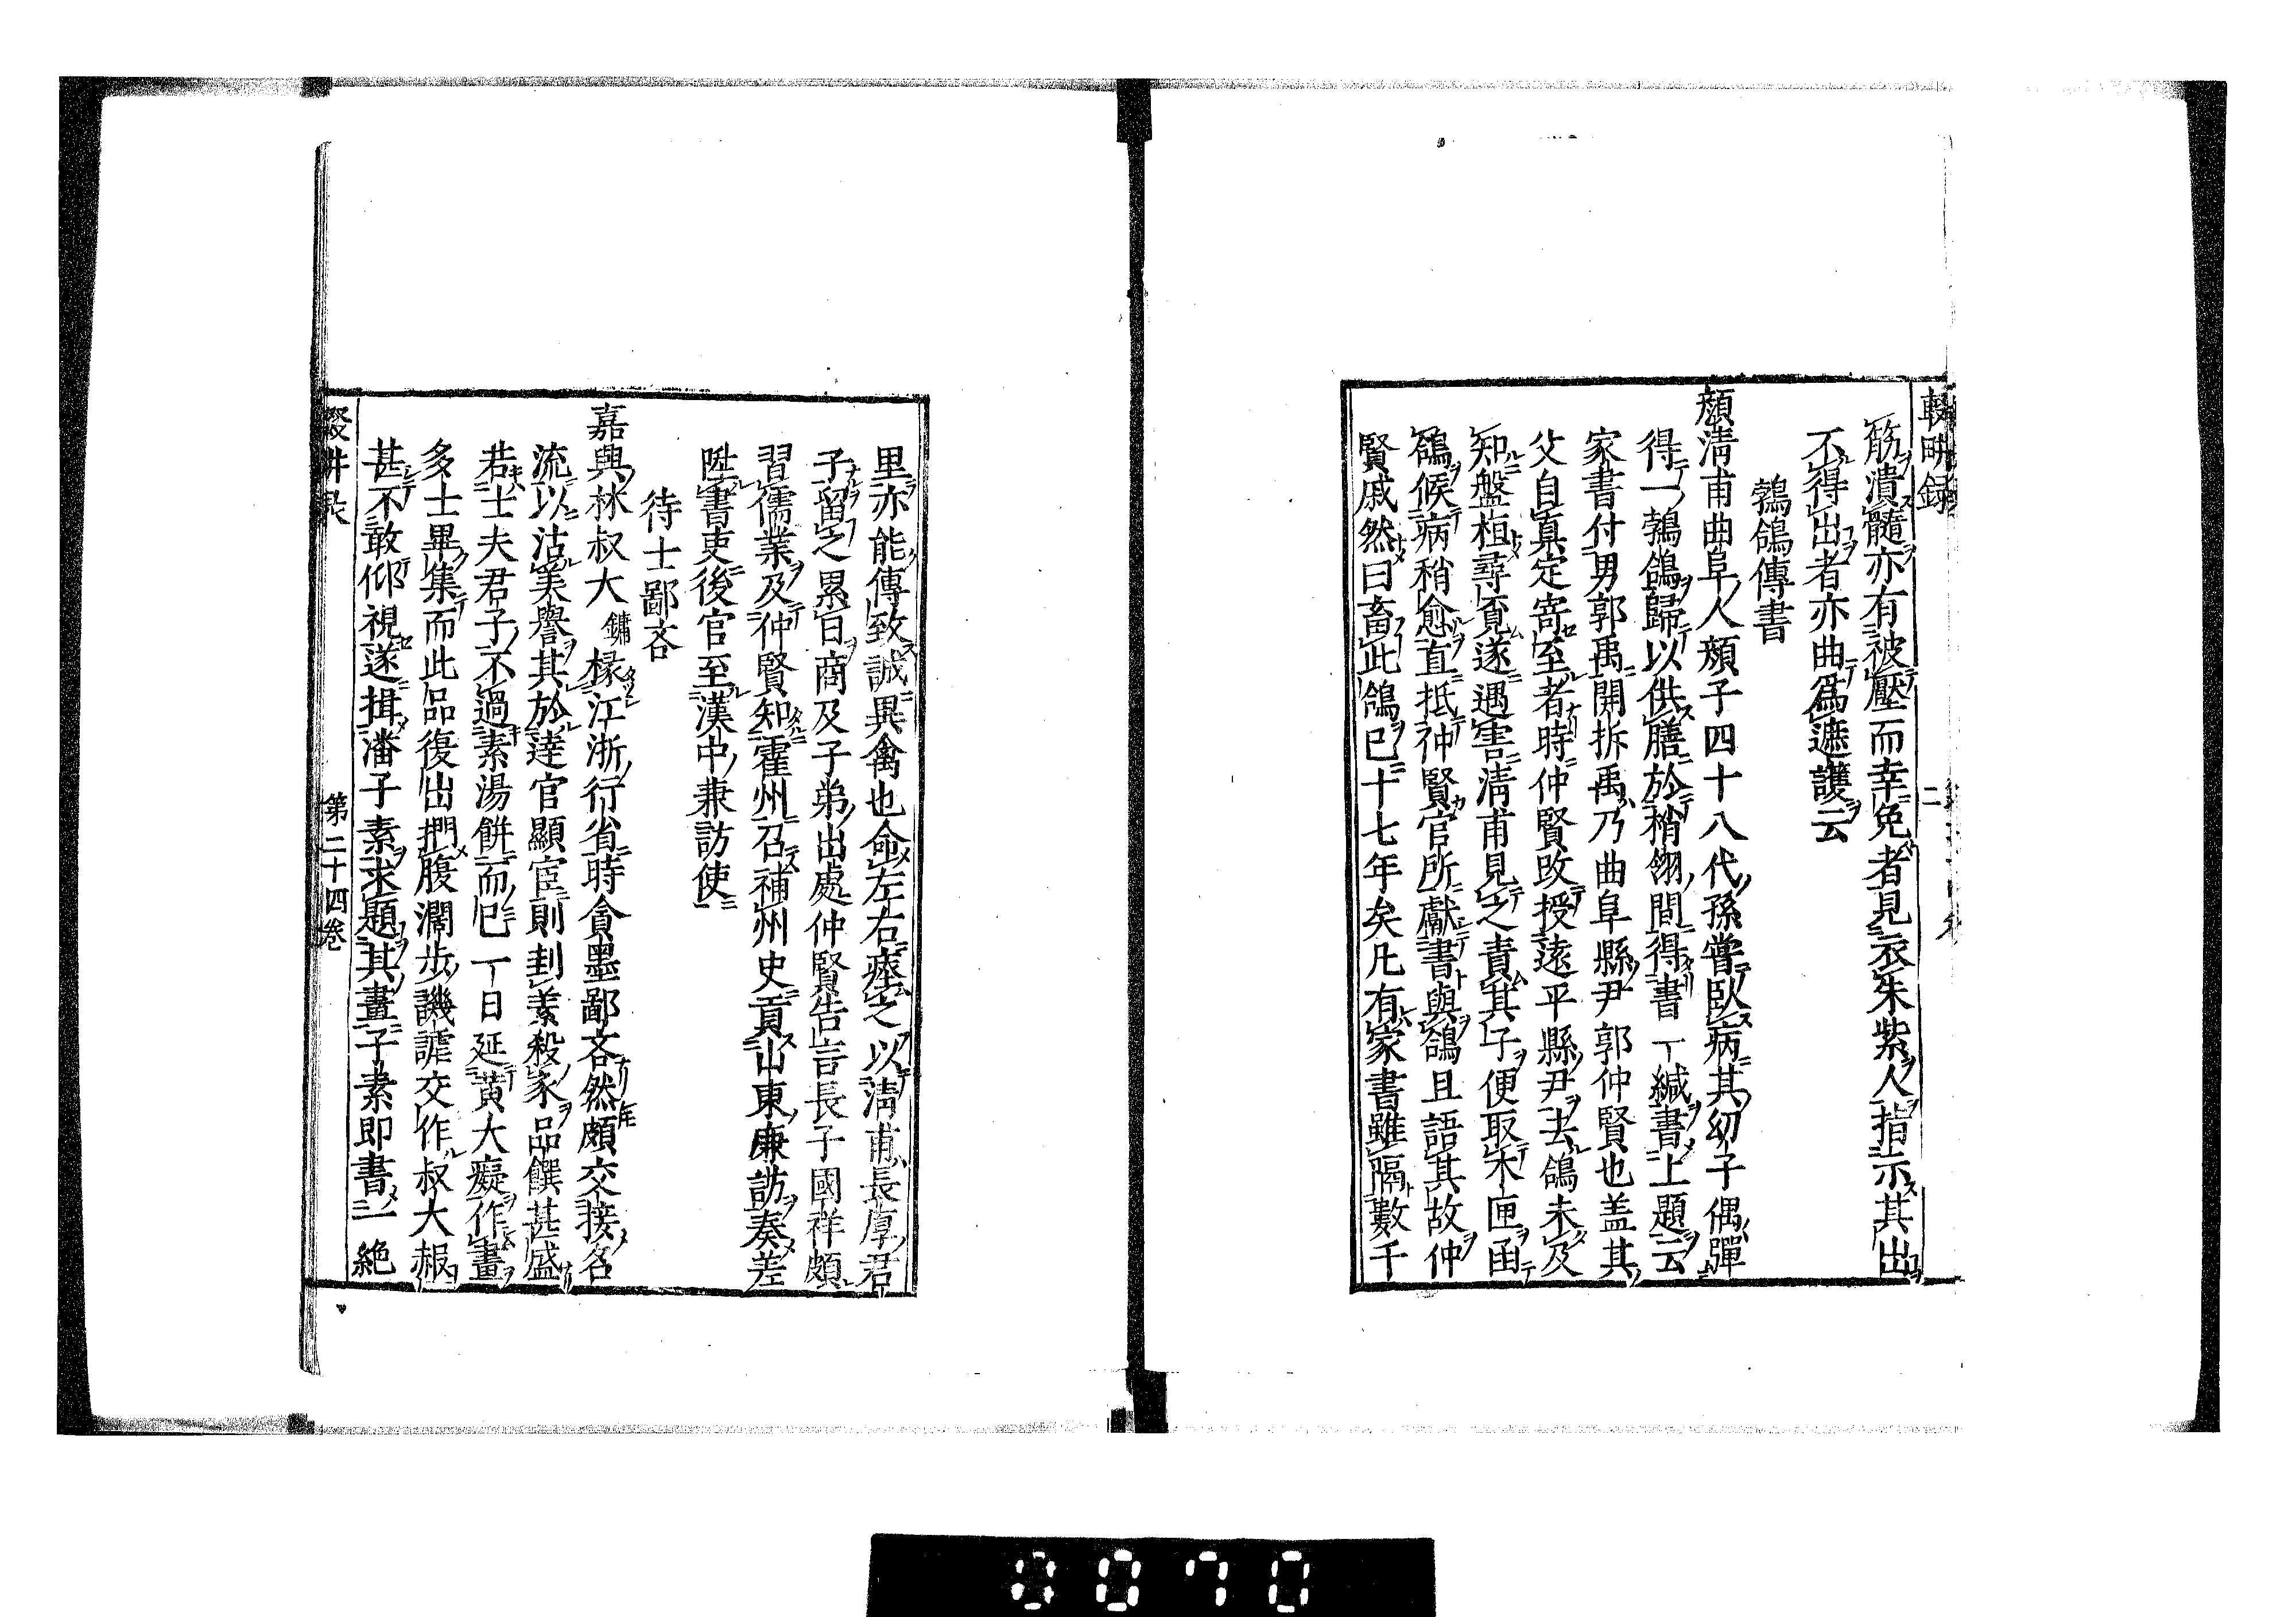 輟畊録
筋潰髓亦有被壓而幸免者見衣朱紫人指示其出
不得出者亦曲爲遮護云
鵓鴿傳書
顏清甫曲阜人顏子四十八代孫嘗臥病其幼子偶彈
得一鵓鴿歸以供膳於梢翎間得書一緘書上題云
家書付男郭禹開拆禹乃曲阜縣尹郭仲賢也盖其
父自真定寄至者時仲賢改授遠平縣尹去鴿未及
知盤桓尋覓遂遇害清甫見之責其子便取木匣函
鴿候病稍愈直抵仲賢官所獻書與鴿且語其故仲
賢戚然曰畜此鴿已十七年矣凡有家書雖隔數千
里亦能傳致誠異禽也命左右瘞之以清甫長厚君
子留之累日商及子弟出處仲賢告言長子國祥頗
習儒業及仲賢知霍州召補州史貢山東廉訪奏差
陞書吏後官至漢中兼訪使
待士鄙吝
嘉興林叔大鏞椽江浙行省時貪墨鄙吝然頗交接名
流以沽美譽其於達官顯宦則刲羔殺豕品饌甚盛
若士夫君子不過素湯餅而已一日延黄大癡作畫
多士畢集而此品復出捫腹濶步譏謔交作叔大赧
甚不敢仰視遂揖潘子素求題其畫子素即書一絶
第二十四卷
0070